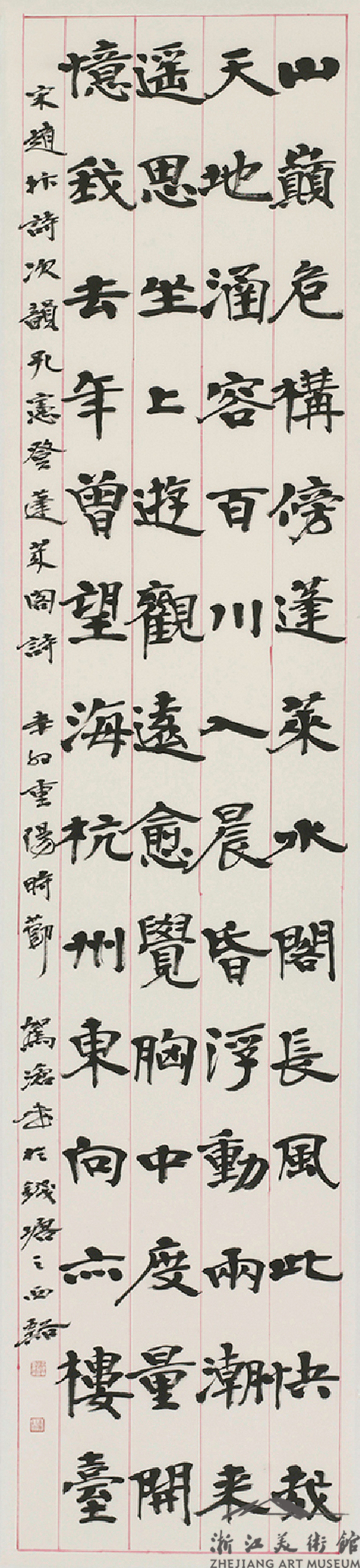 山巔危構傍蓬萊水閣長風此快哉
天地涵容百川入晨昏浮動兩潮来
遥思坐上遊觀遠愈覺胸中度量開
憶我去年曾望海杭州東向亦樓臺
宋趙抃詩次韻孔憲登蓬萊閣詩 重陽時節 書於錢塘之西谿
浙江美術館
ZHEJIANG ART MUSEUM